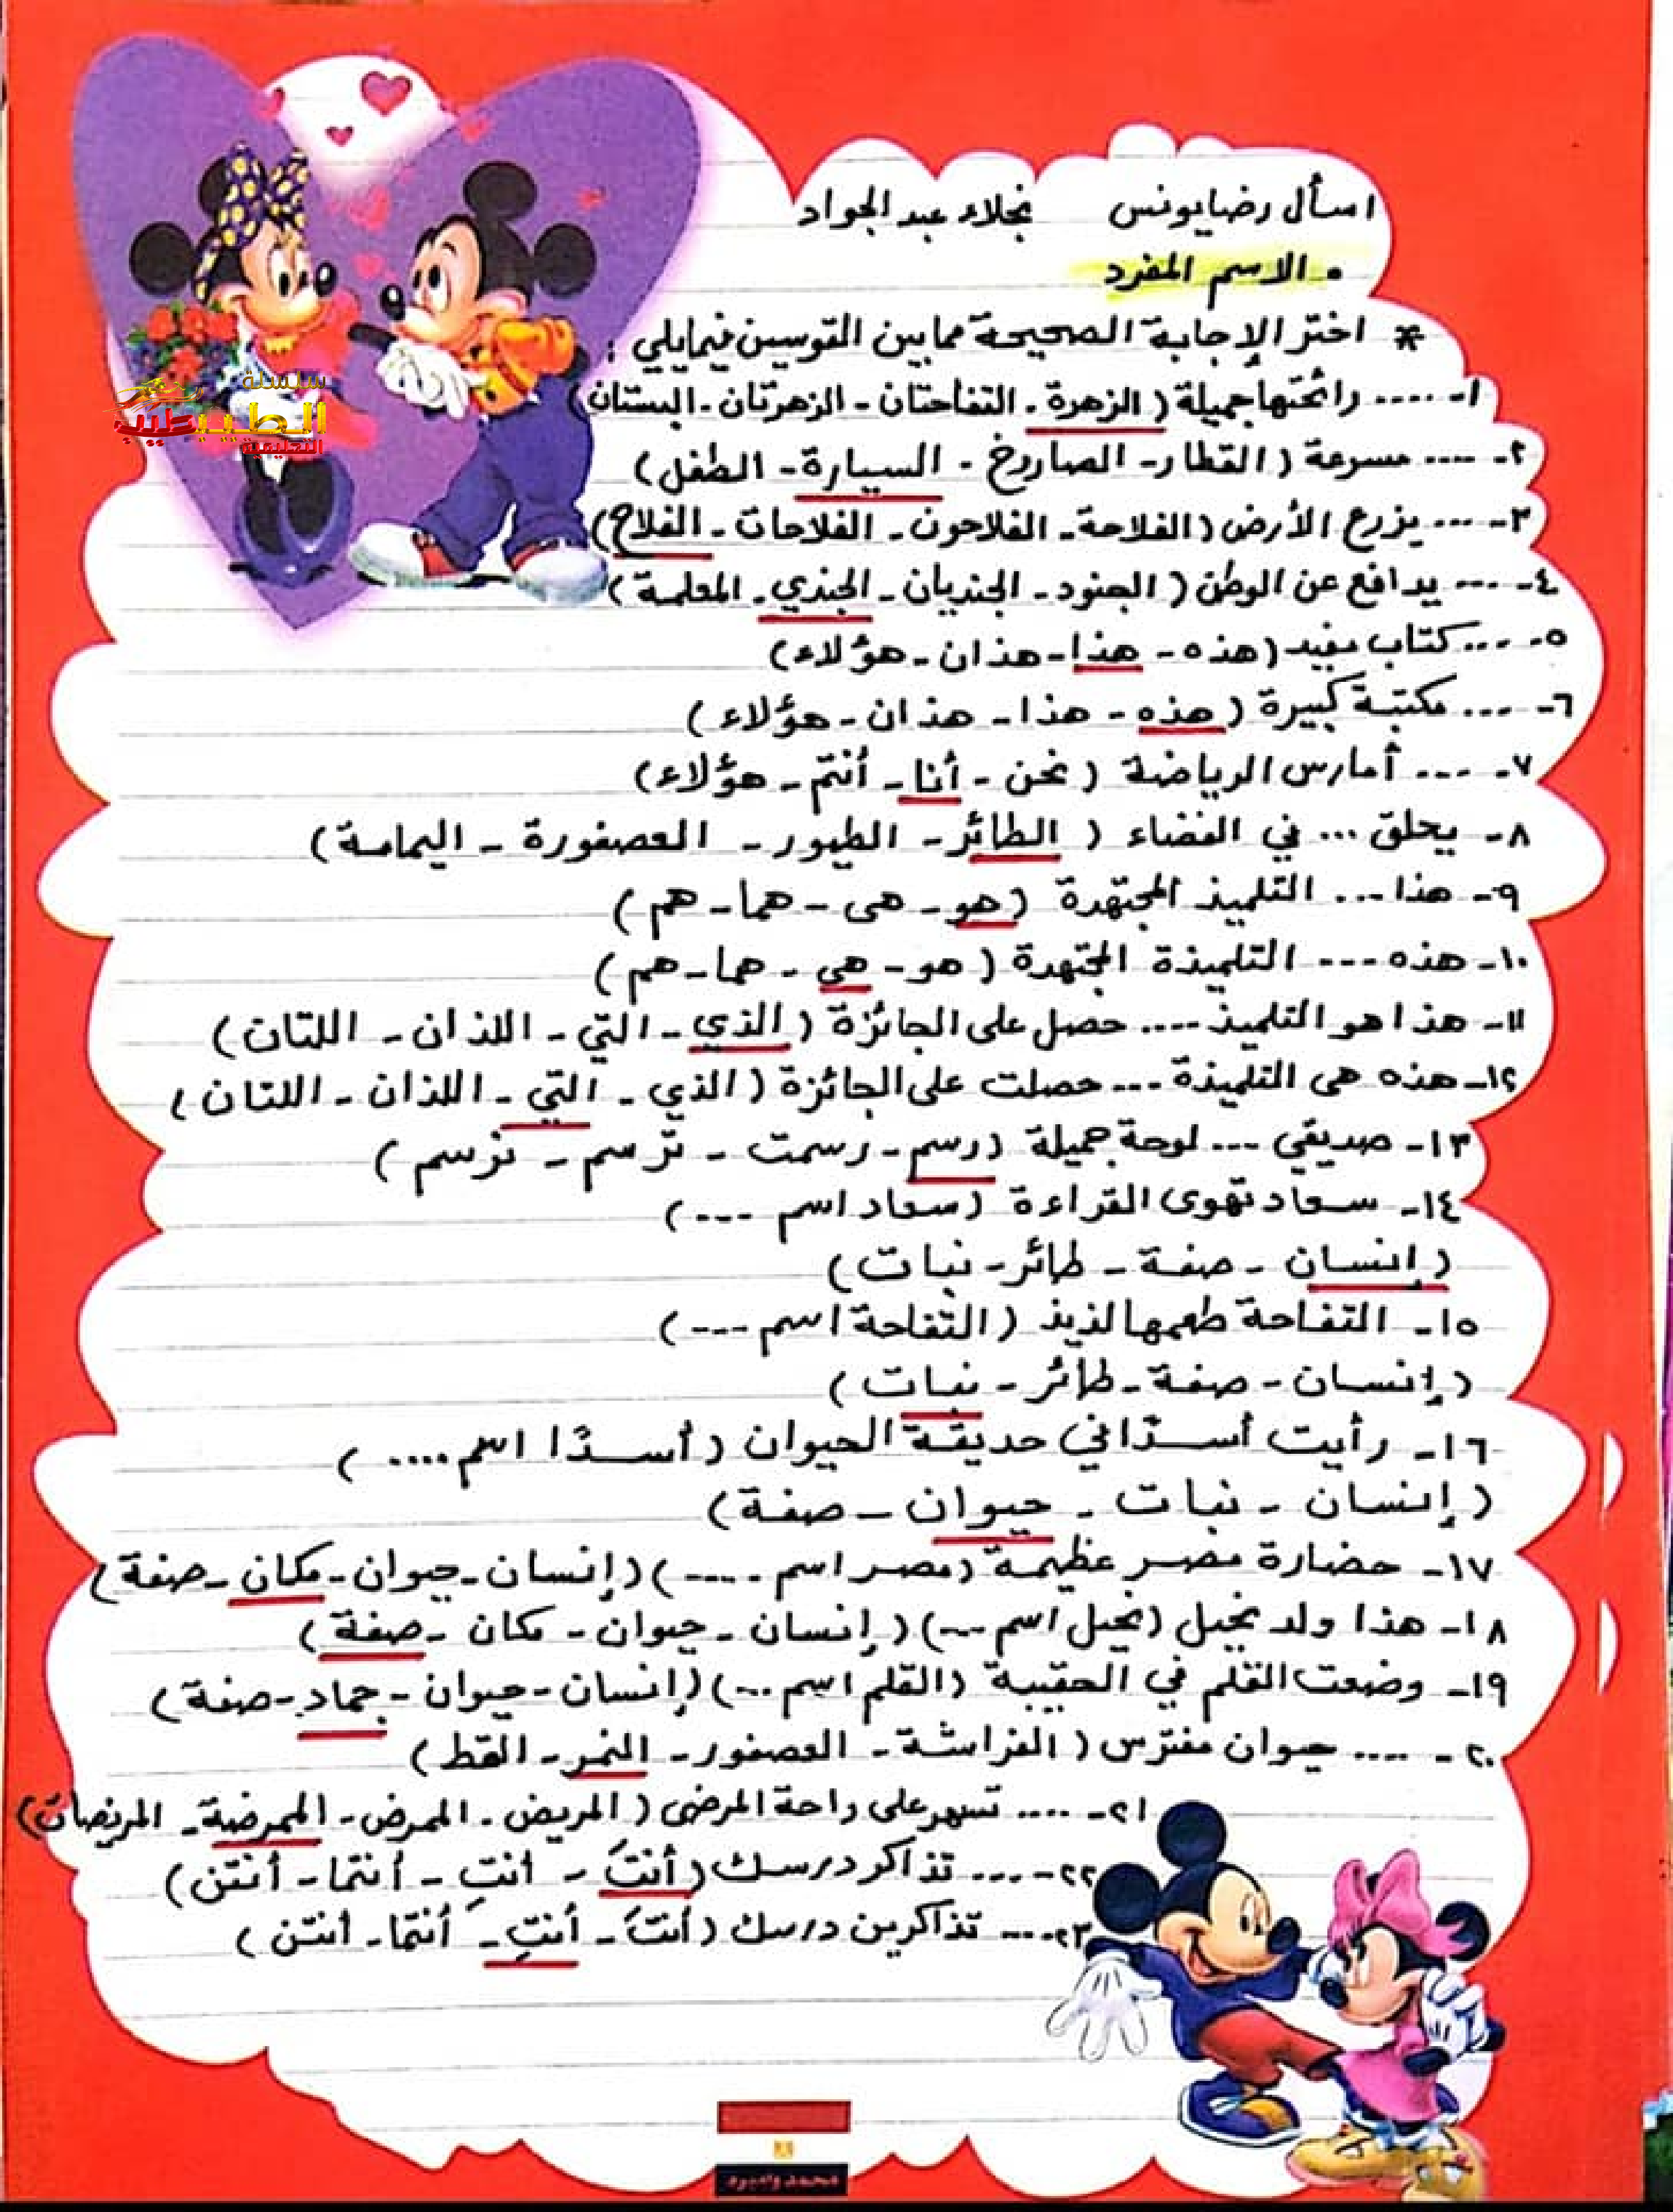 اسأل رضا يونس نجلاء عبد الجواد
• الاسم المفرد
* اختر الإجابة الصحيحة مما بين القوسين فيما يلي :
سلسلة
الطبيب
التعليمية
١- .... رائحتها جميلة ( الزهرة - التفاحتان - الزهرتان - البستان )
٢- .... مسرعة ( القطار - الصاروخ - السيارة - الطفل )
٣- ... يزرع الأرض ( الفلاحة - الفلاحون - الفلاحات - الفلاح )
٤- ... يدافع عن الوطن ( الجنود - الجنديان - الجندي - المعلمة )
٥- ... كتاب مفيد ( هذه - هذا - هذان - هؤلاء )
٦- ... مكتبة كبيرة ( هذه - هذا - هذان - هؤلاء )
٧- ... أمارس الرياضة ( نحن - أنا - أنتم - هؤلاء )
٨- يحلق ... في الفضاء ( الطائر - الطيور - العصفورة - اليمامة )
٩- هذا ... التلميذ المجتهدة ( هو - هى - هما - هم )
١٠- هذه --- التلميذة المجتهدة ( هو - هى - هما - هم )
١١- هذا هو التلميذ .... حصل على الجائزة ( الذي - التي - اللذان - اللتان )
١٢- هذه هى التلميذة --- حصلت على الجائزة ( الذي - التي - اللذان - اللتان )
١٣- صديقي --- لوحة جميلة ( رسم - رسمت - ترسم - نرسم )
١٤- سعاد تهوى القراءة ( سعاد اسم --- )
( إنسان - صفة - طائر - نبات )
١٥- التفاحة طعمها لذيذ ( التفاحة اسم --- )
( إنسان - صفة - طائر - نبات )
١٦- رأيت أسدًا في حديقة الحيوان ( أسدًا اسم .... )
( إنسان - نبات - حيوان - صفة )
١٧- حضارة مصر عظيمة ( مصر اسم .... ) ( إنسان - حيوان - مكان - صفة )
١٨- هذا ولد بخيل ( بخيل اسم --- ) ( إنسان - حيوان - مكان - صفة )
١٩- وضعت القلم في الحقيبة ( القلم اسم ... ) ( إنسان - حيوان - جماد - صفة )
٢٠- .... حيوان مفترس ( الفراشة - العصفور - النمر - القط )
٢١- .... تسهر على راحة المرضى ( المريض - الممرض - الممرضة - المريضات )
٢٢- .... تذاكر درسك ( أنتَ - أنتِ - أنتما - أنتن )
٢٣- ... تذاكرين درسك ( أنتَ - أنتِ - أنتما - أنتن )